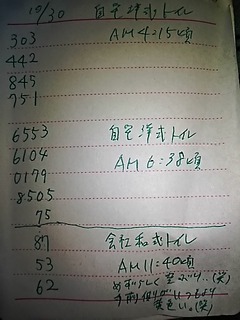 10/30 自宅洋式トイレ
303 AM4:15頃
442
845
751
6553 自宅洋式トイレ
6104
0179 AM6:38頃
8505
75
87 会社和式トイレ
53 AM11:40頃
62 めずらしく空ぶり..(笑)
手前側がいつもより
黄色い。(笑)